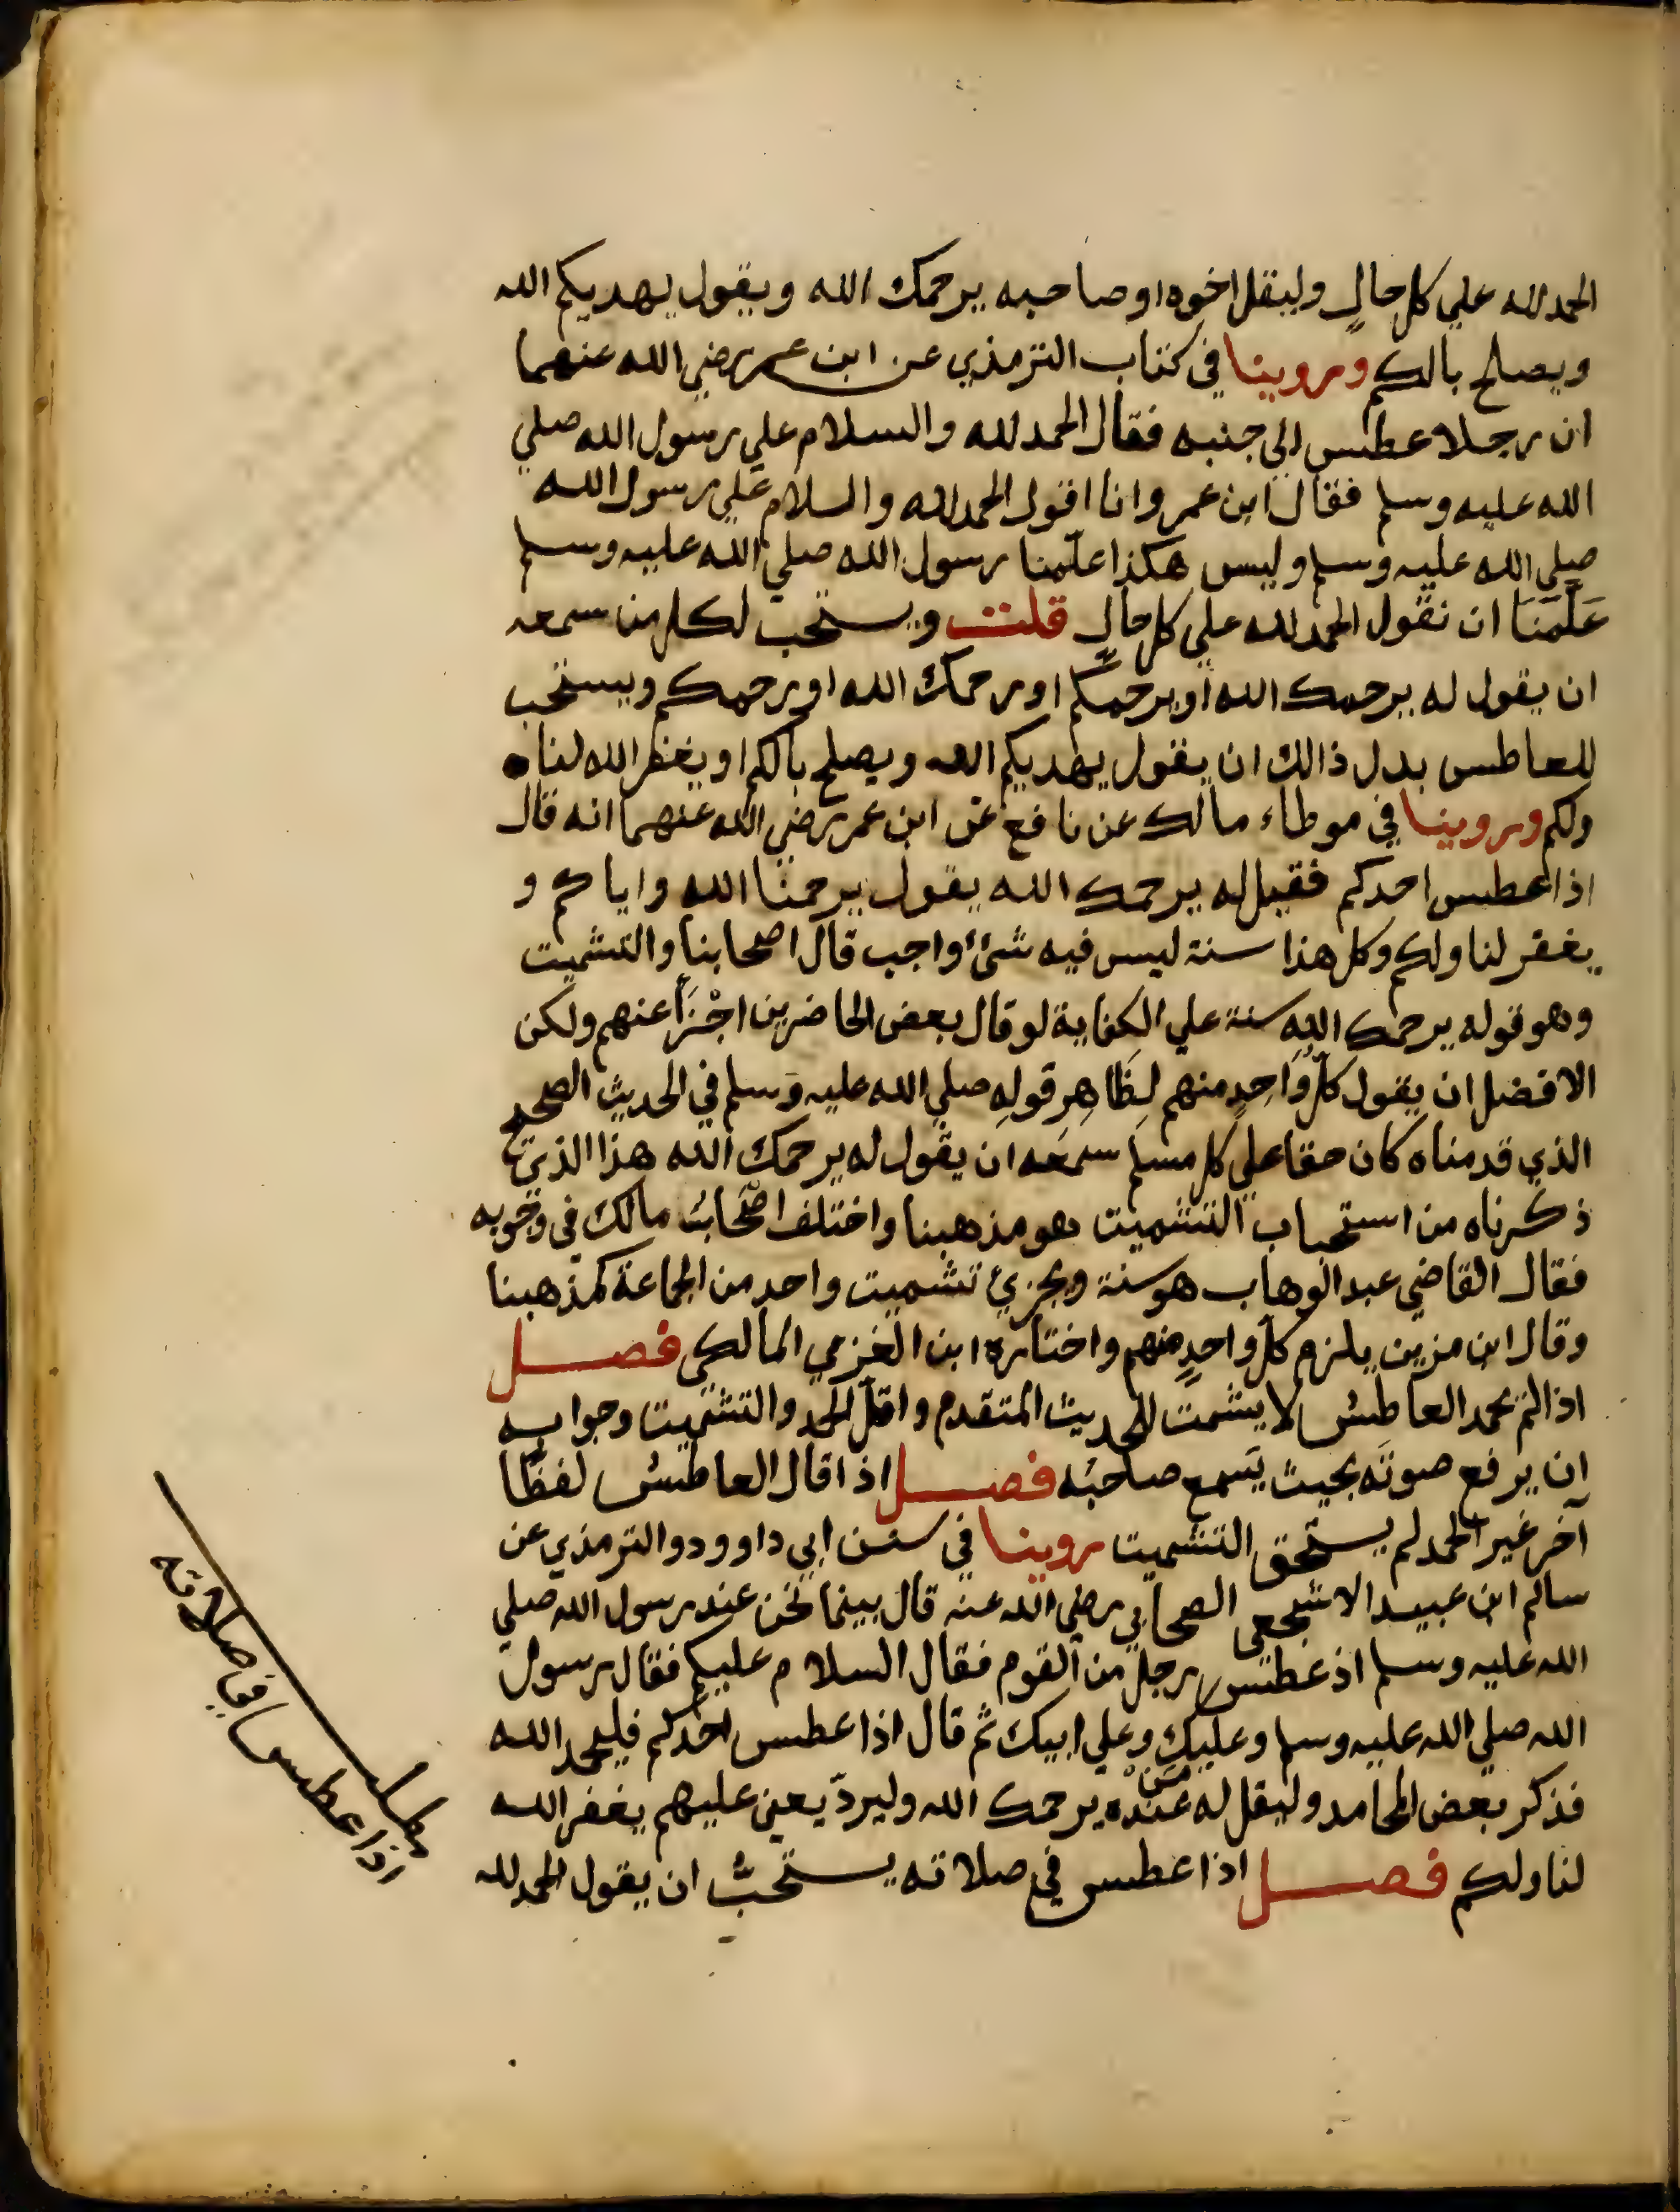 الحمد لله علي كل حالٍ وليقل اخوه او صاحبه يرحمك الله ويقول يهديكم الله
ويصلح بالكم وروينا في كتاب الترمذي عن ابن عمر رضي الله عنهما
ان رجلا عطس الي جنبه فقال الحمد لله والسلام علي رسول الله صلي
الله عليه وسلم فقال ابن عمر وانا اقول الحمد لله والسلام علي رسول الله
صلي الله عليه وسلم وليس هكذا علّمنا رسول الله صلي الله عليه وسلم
عَلَّمَنَا ان نقول الحمد لله علي كل حالٍ قلت ويستحب لكل من سمعه
ان يقول له يرحمك الله او يرحمكم او رحمك الله او رحمكم ويستحب
للعاطس بدل ذالك ان يقول يهديكم الله ويصلح بالكم او يغفر الله لنا
ولكم وروينا في موطاء مالك عن نافع عن ابن عمر رضي الله عنهما انه قال
اذا عطس احدكم فقيل له يرحمك الله يقول يرحمنا الله واياكم و
يغفر لنا ولكم وكل هذا سنة ليس فيه شئ واجب قال اصحابنا والتشميت
وهو قوله يرحمك الله سنة علي الكفاية لو قال بعض الحاضرين اجْزَأ عنهم ولكن
الافضل ان يقول كلُّ وَاحِدٍ منهم لِظَاهِرِ قولِهِ صلي الله عليه وسلم في الحديث الصحيح
الذي قدمناه كان حقا علي كل مسلم سمِعَه ان يقول له يرحمك الله هذا الذي
ذكرناه من استحباب التشميت هو مذهبنا واختلف اصْحَابُ مالك في وجوبه
فقال القاضي عبد الوهاب هو سنة ويجزئ تشميت واحد من الجماعة كمذهبنا
وقال ابن مزين يلزم كل واحدٍ منهم واختاره ابن الغزمي المالكي فصل
اذا لم يحمد العاطِسُ لا يشمت للحديث المتقدم واقلّ الحمد والتشميت وجوابه
ان يرفع صوتَه بحيث يَسمع صاحبُه فصل اذا قال العاطسُ لفظًا
آخر غير الحمد لم يستحق التشميت روينا في سنن ابي داوود والترمذي عن
سالم ابن عبيد الاشجعي الصحابي رضي الله عنه قال بينما نحن عند رسول الله صلي
الله عليه وسلم اذ عطس رجل من القوم فقال السلام عليكم فقال رسول
الله صلي الله عليه وسلم وعليك وعلي ابيك ثم قال اذا عطس احدكم فليحمد الله
فذكر بعض المحامد وليقل له مَنْ عنده يرحمك الله وليردّ يعني عليهم يغفر الله
لنا ولكم فصل اذا عطس في صلاته يستحبُّ ان يقول الحمد لله
مطلب
اذا عطس في صلاته